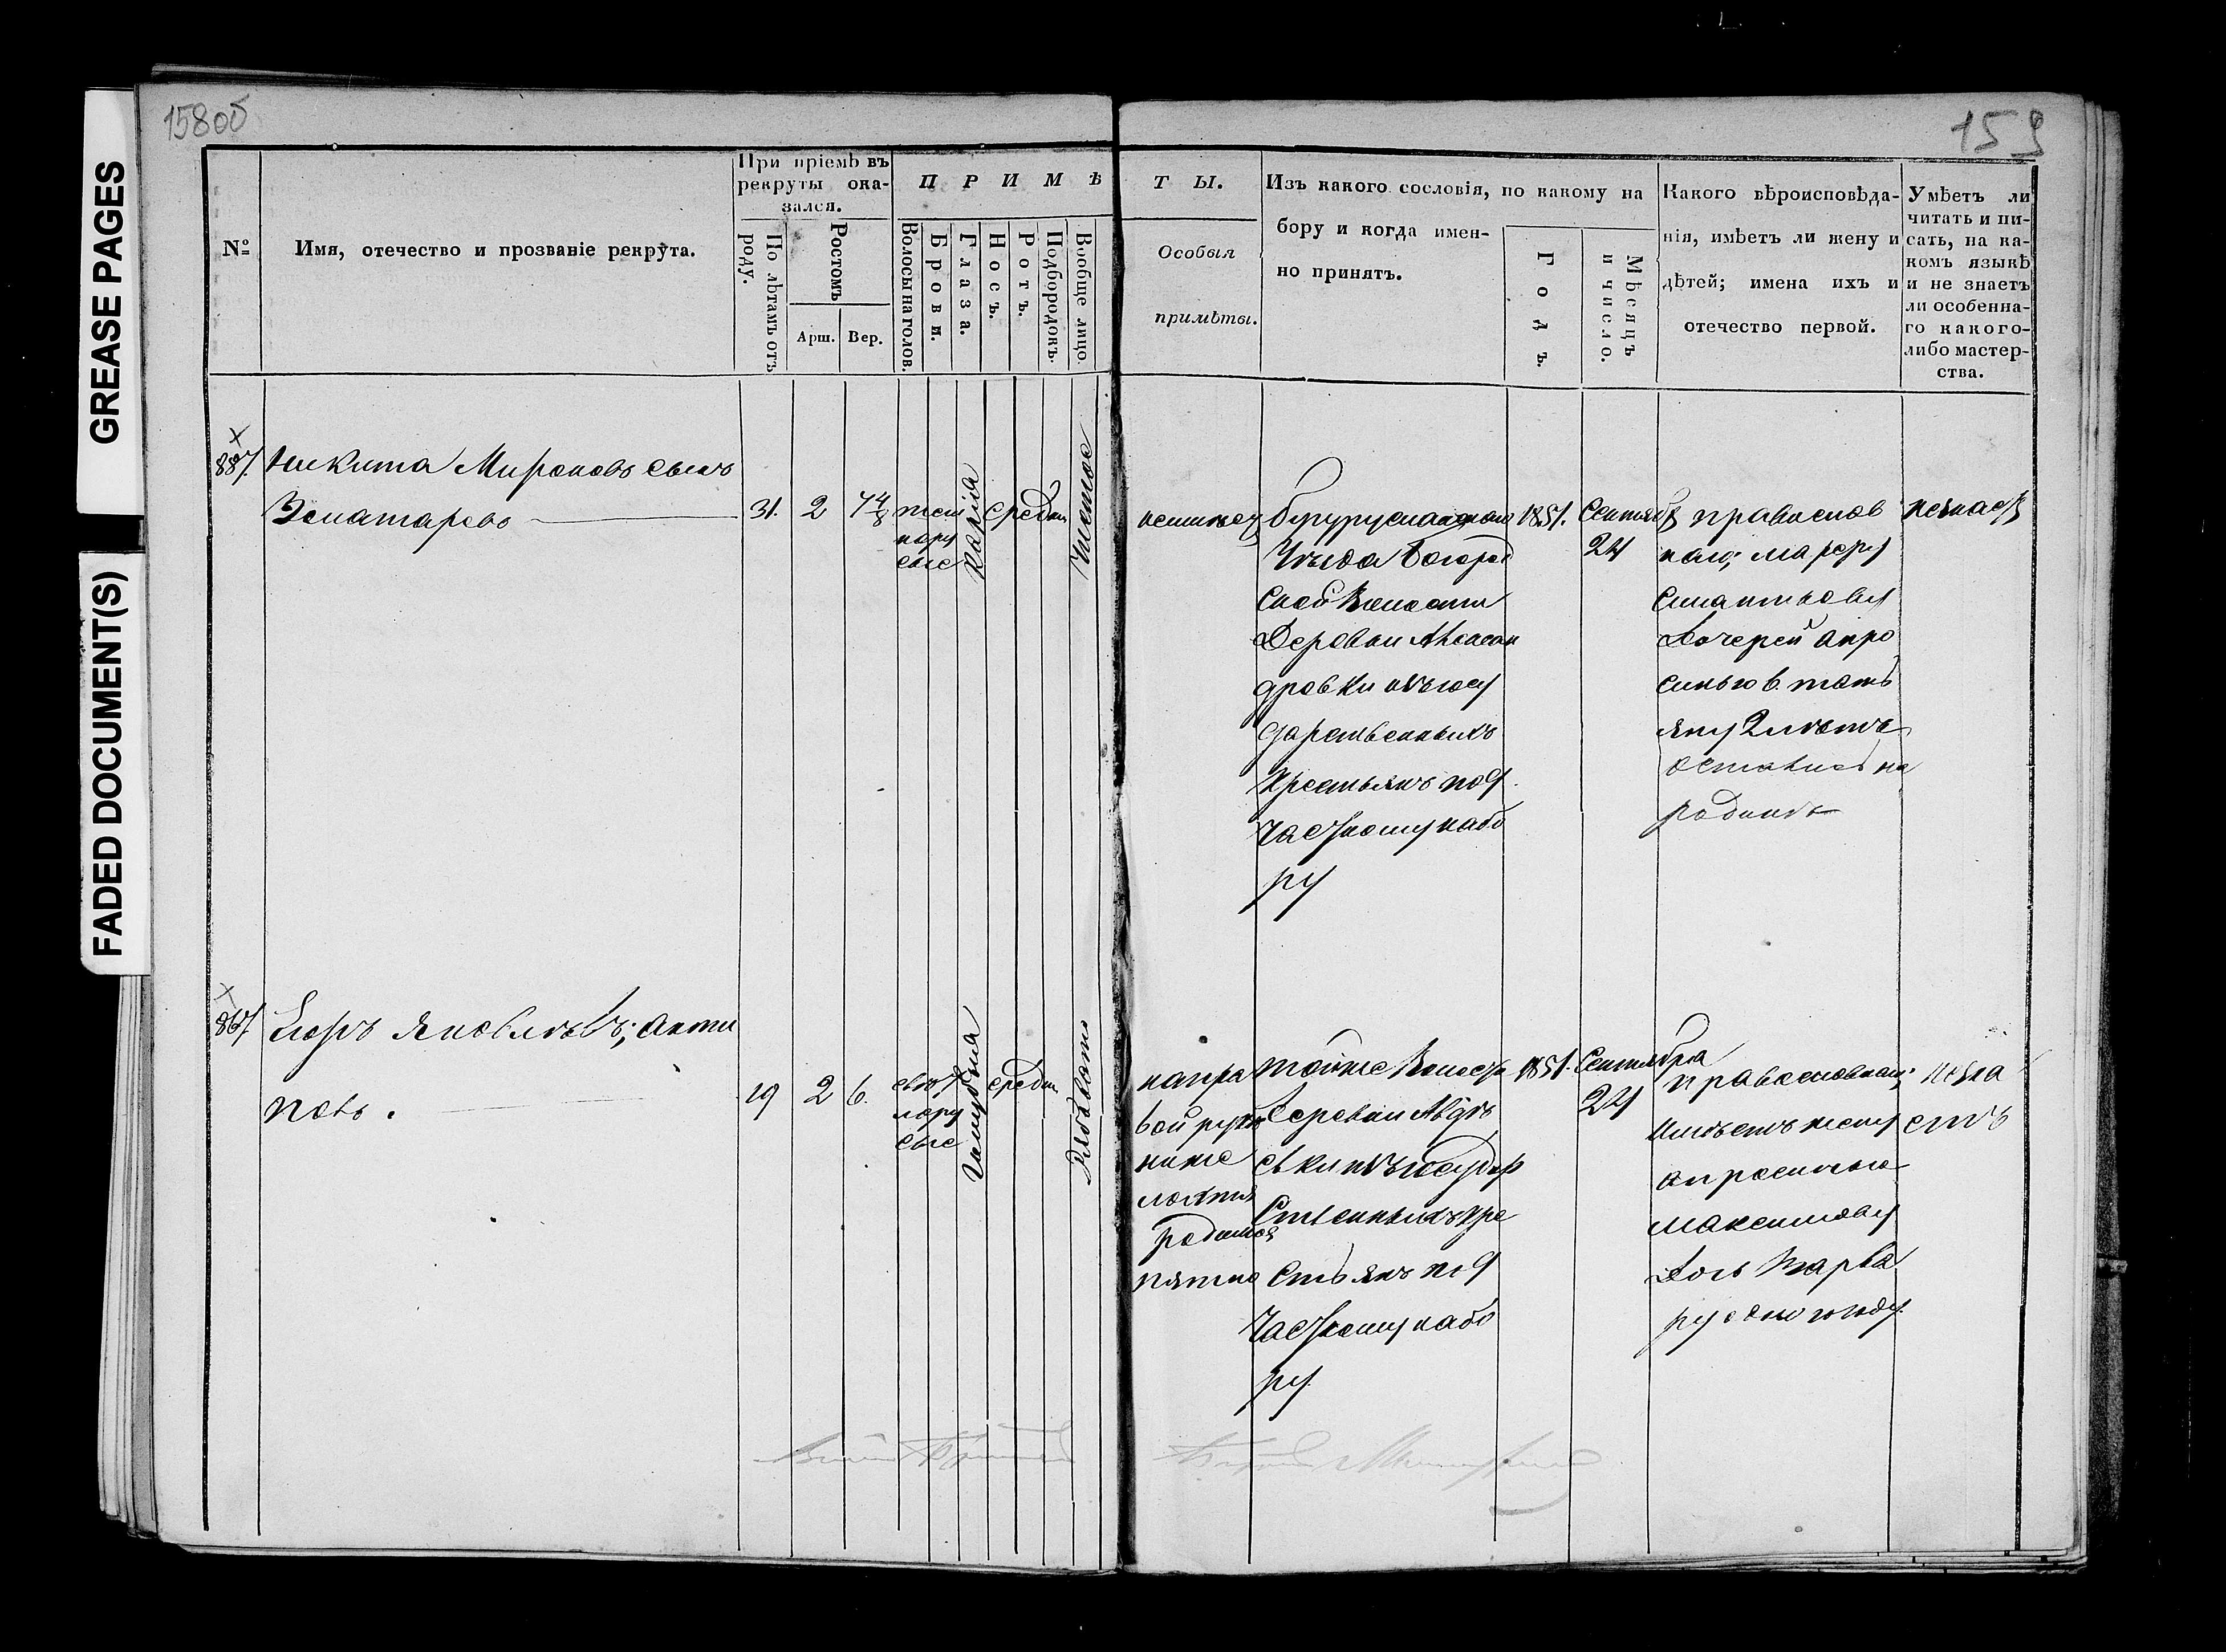 GREASE PAGES
FADED DOCUMENT(S)
158об
159
№
Имя, отечество и прозваніе рекрута.
При пріемѣ въ
рекруты ока-
зался.
По лѣтамъ отъ
роду.
Ростомъ
Арш.
Вер.
ПРИМѢ
Волосы на голов.
Брови.
Глаза.
Носъ.
Ротъ.
Подбородокъ.
Вообще лицо.
ТЫ.
Особыя
примѣты.
Изъ какого сословія, по какому на
бору и когда имен-
но принятъ.
Годъ.
Мѣсяцъ
и число.
Какого вѣроисповѣда-
нія, имѣетъ ли жену и
дѣтей; имена ихъ и
отечество первой.
Умѣетъ ли
читать и пи-
сать, на ка-
комъ языкѣ
и не знаетъ
ли особенна-
го какого-
либо мастер-
ства.
887.
Никита Мироновъ сынъ
31.
2
темно
русые
карія
средн
Чистое
неимеет
Бугурусланскаго
Уѣзда Богород
ской Волости
Деревни Алексан
дровки изъ госу
дарственныхъ
Крестьянъ по 9
частному набо
ру
1851.
Сентяб
24
православ
наго; Марфу
дочерей Апро
синью 6. тать
яну 2 лѣтъ
остались на
родинѣ
867.
Егоръ Яковлевъ; Анти
повъ.
19
2
6.
свѣт
лору
сые
Голубыя
средн
Рябовато
на пра
вой рукѣ
ниже
локтя
родимое
пятно
тойже Волости
Деревни Авдѣ
евки изъ государ
ственныхъ кре
стьянъ по 9
частному набо
ру
1851.
Сентября
24
православнаго;
имѣетъ жену
Апросинью
Максимову
дочь Варва
ру одного году.
незна
етъ